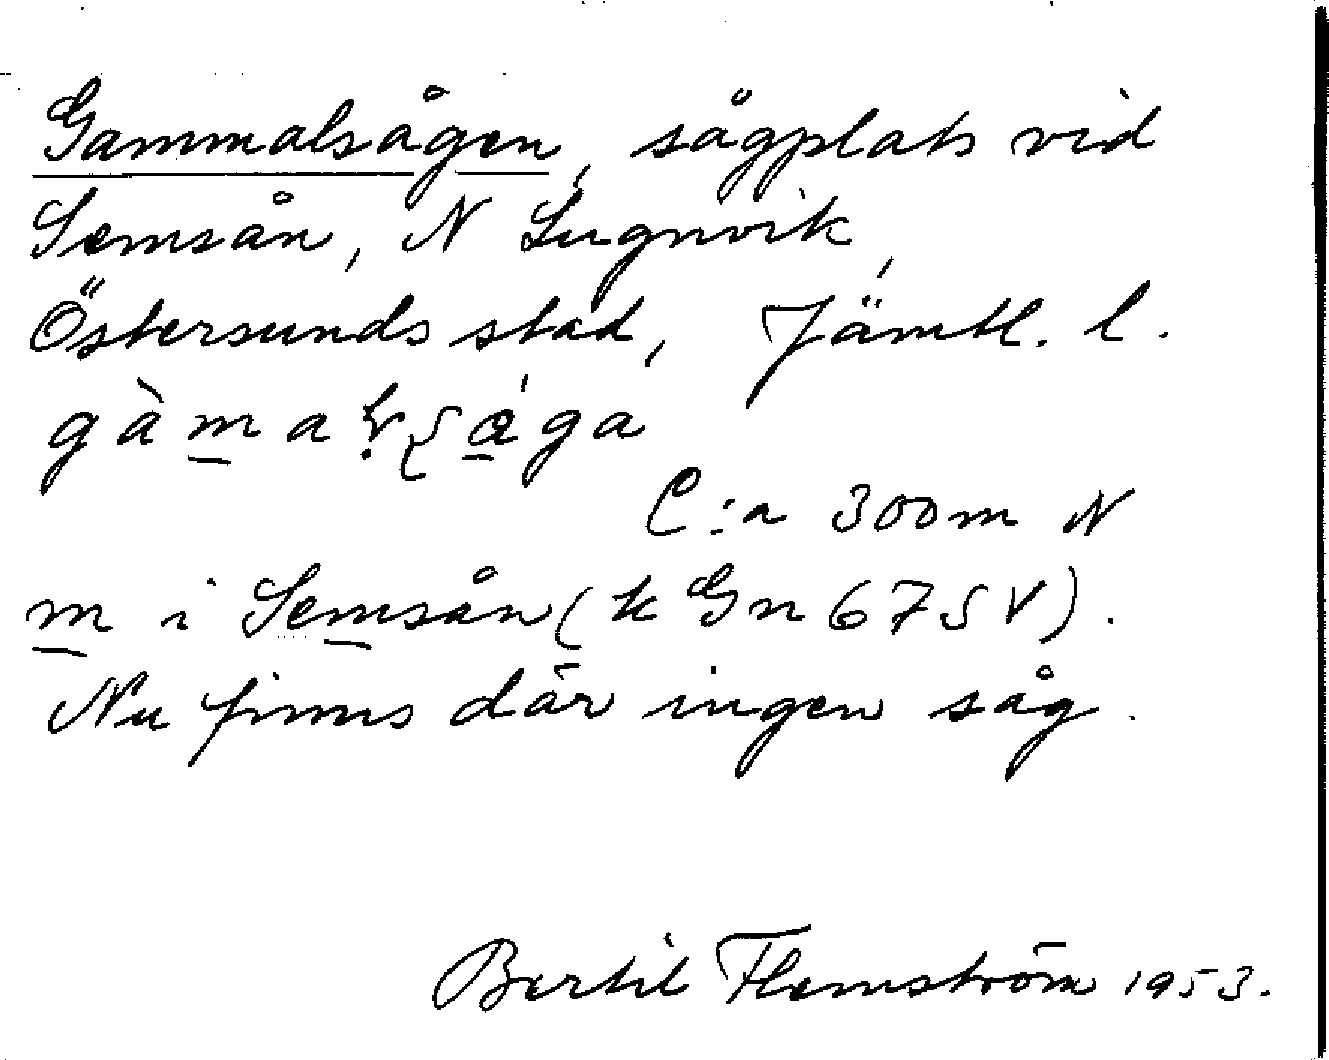 Gammalsågen, sågplats vid
Semsån, N Lugnvik,
Östersunds stad, Jämtl. l.
C:a 300 m N
m i Semsån (k Gn 67 SV).
Nu finns där ingen såg.
Bertil Flemström 1953.